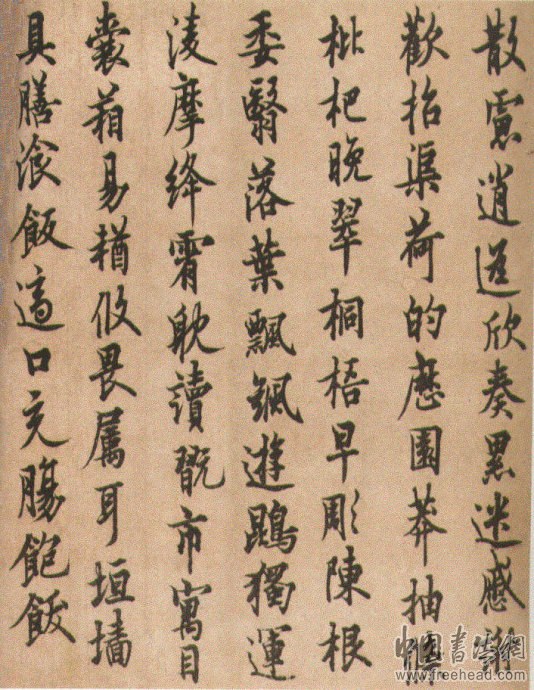 散慮逍遥欣奏累遣慼謝
歡招渠荷的歷園莽抽條
枇杷晚翠梧桐早彫陳根
委翳落葉飄颻遊鵾獨運
淩摩絳霄耽讀翫市寓目
囊箱易輶攸畏屬耳垣墻
具膳飡飯適口充腸飽飫
中国書法網
www.freehead.com